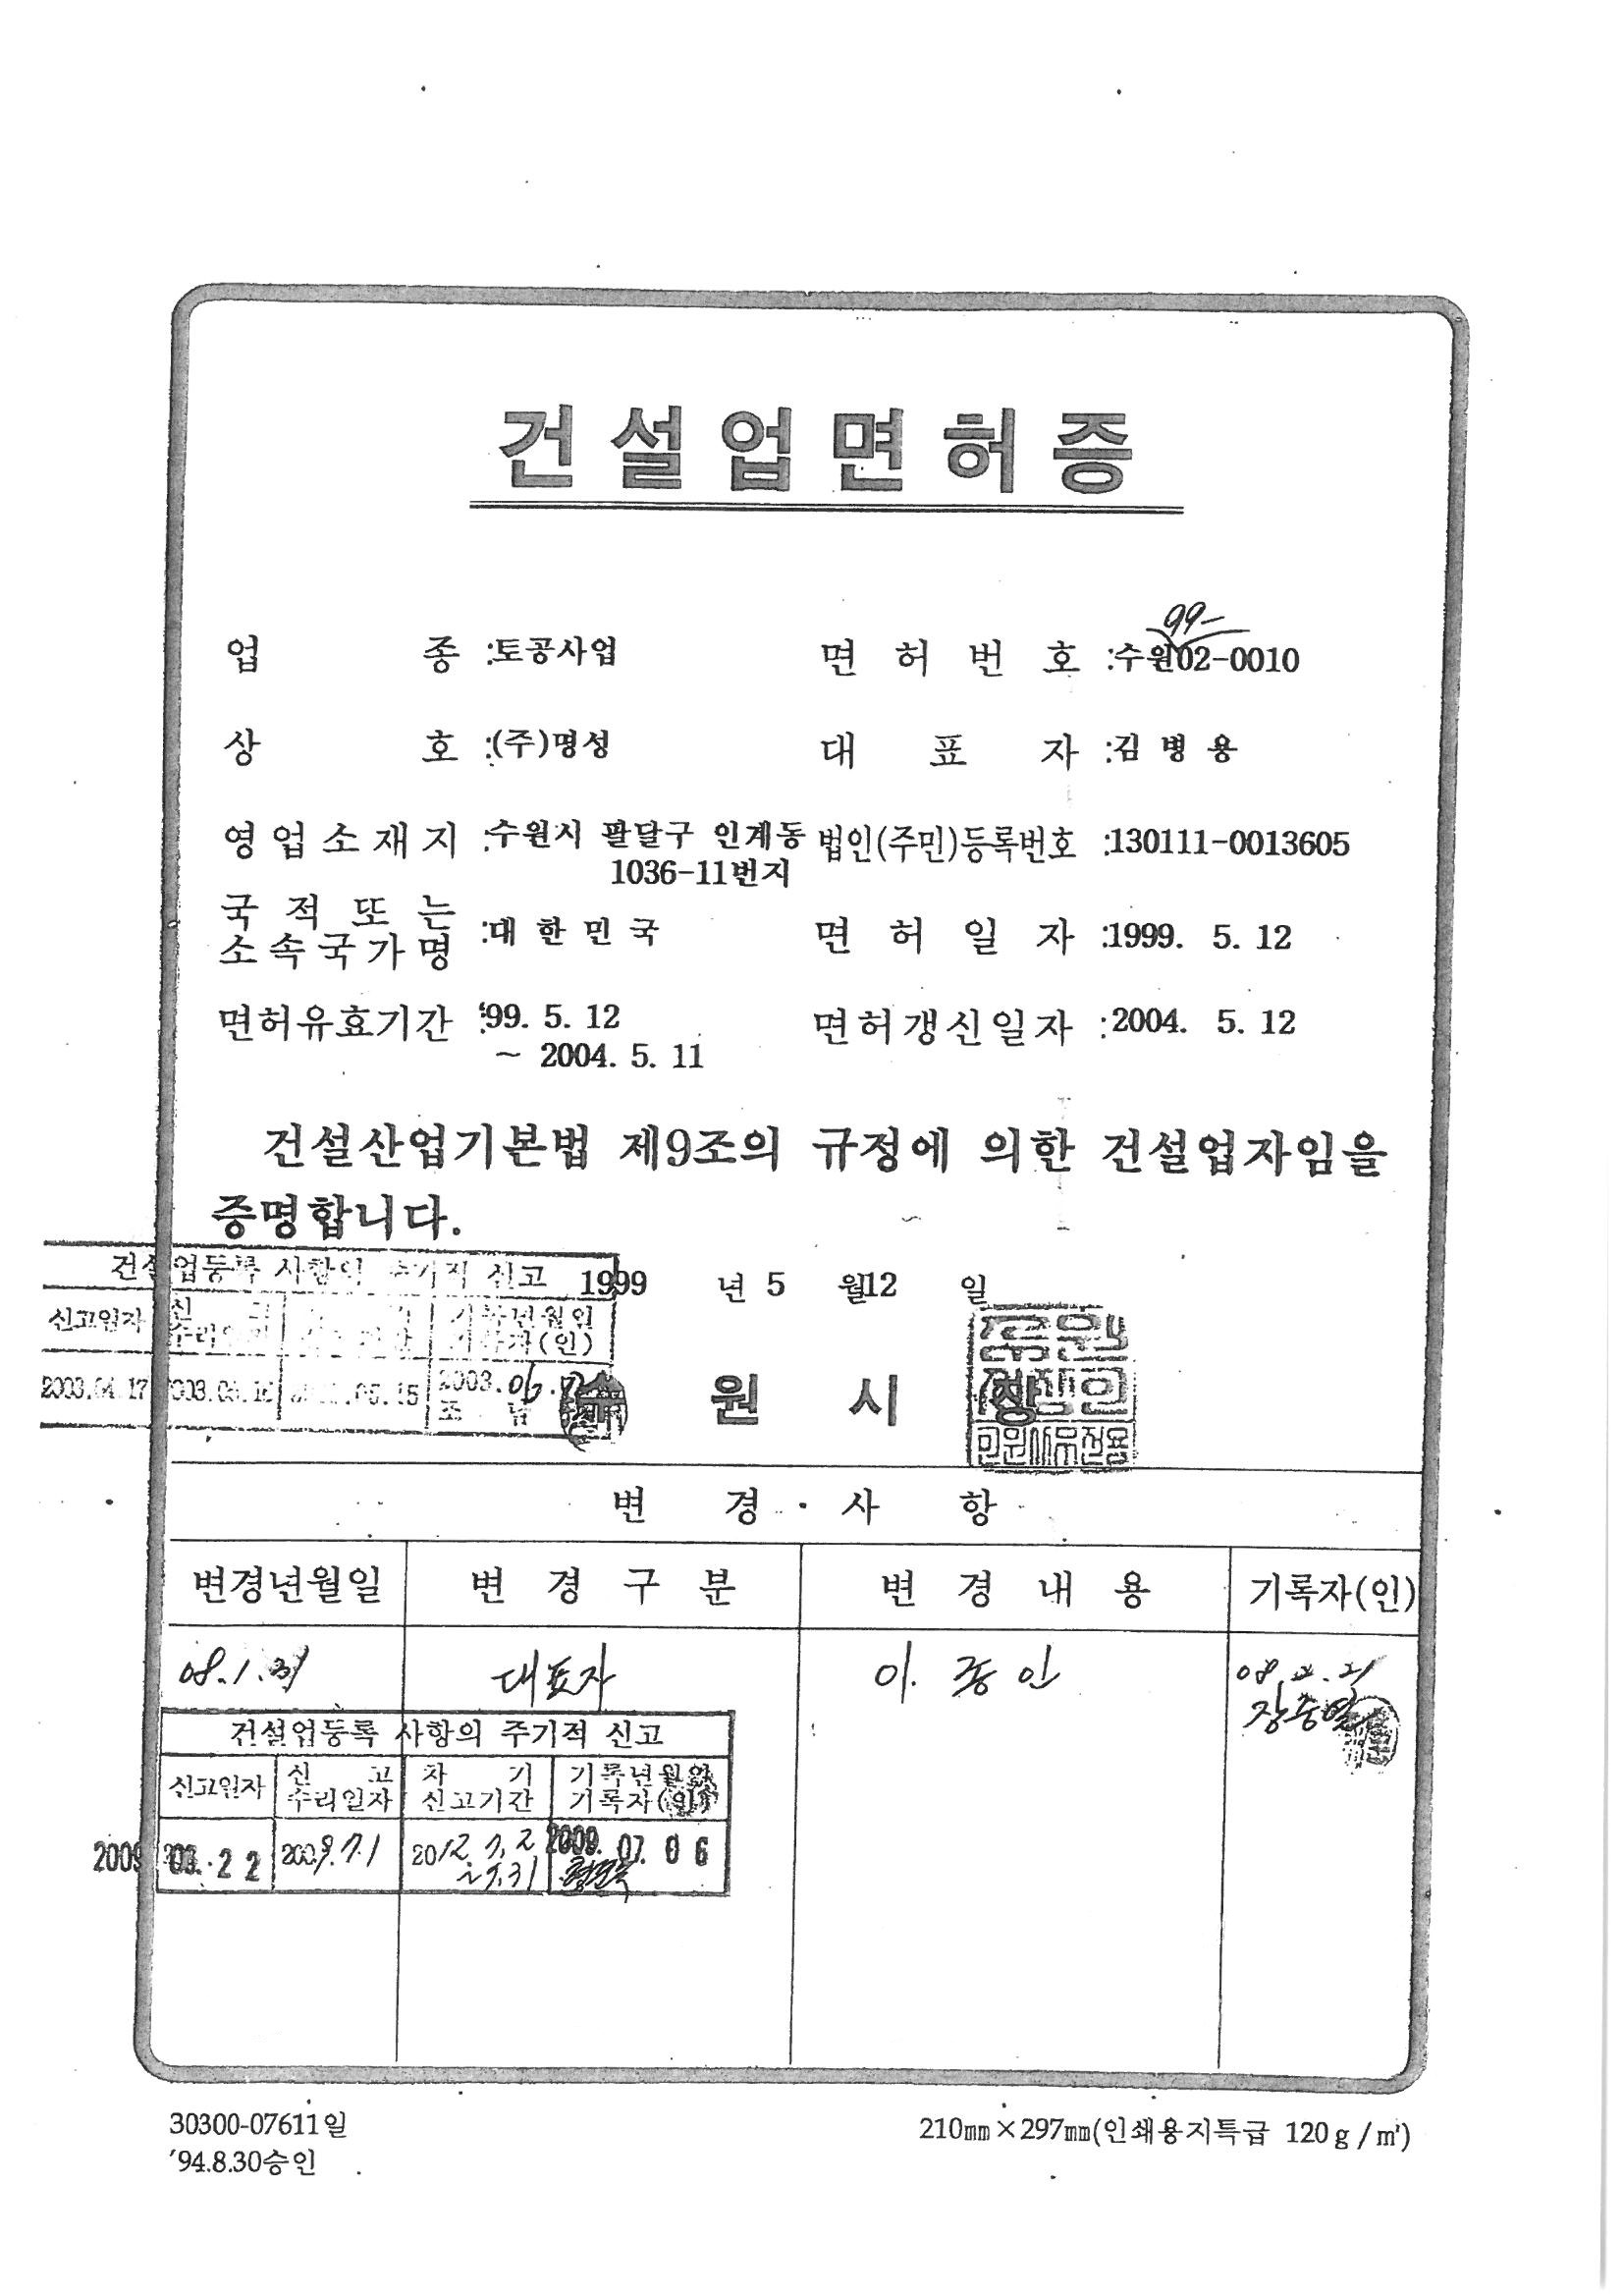 건설업면허증
99-
업 종 :토공사업 면 허 번 호 :수원02-0010
상 호 :(주)명성 대 표 자 :김 병 용
영업소재지 :수원시 팔달구 인계동 법인(주민)등록번호 :130111-0013605
1036-11번지
국 적 또 는
소속국가명 :대 한 민 국 면 허 일 자 :1999. 5. 12
면허유효기간 :'99. 5. 12 면허갱신일자 :2004. 5. 12
~ 2004. 5. 11
건설산업기본법 제9조의 규정에 의한 건설업자임을
증명합니다.
건설업등록 사항의 주기적 신고
1999 년 5 월12 일
신고일자 신 고 기록년월일
수리일자 기록자(인)
2003.04.17 2003.
수 원 시 장
변 경 사 항
변경년월일 변 경 구 분 변 경 내 용 기록자(인)
08.1.31 대표자 이. 종 인 08.2.21
장승열
건설업등록 사항의 주기적 신고
신고일자 신 고 차 기 기록년월일
수리일자 신고기간 기록자(인)
2009 03. 22 2009.7.1 2012.7.2 2009. 07. 06
~ 7.31
30300-07611일 210㎜×297㎜(인쇄용지특급 120g/㎡)
'94.8.30승인